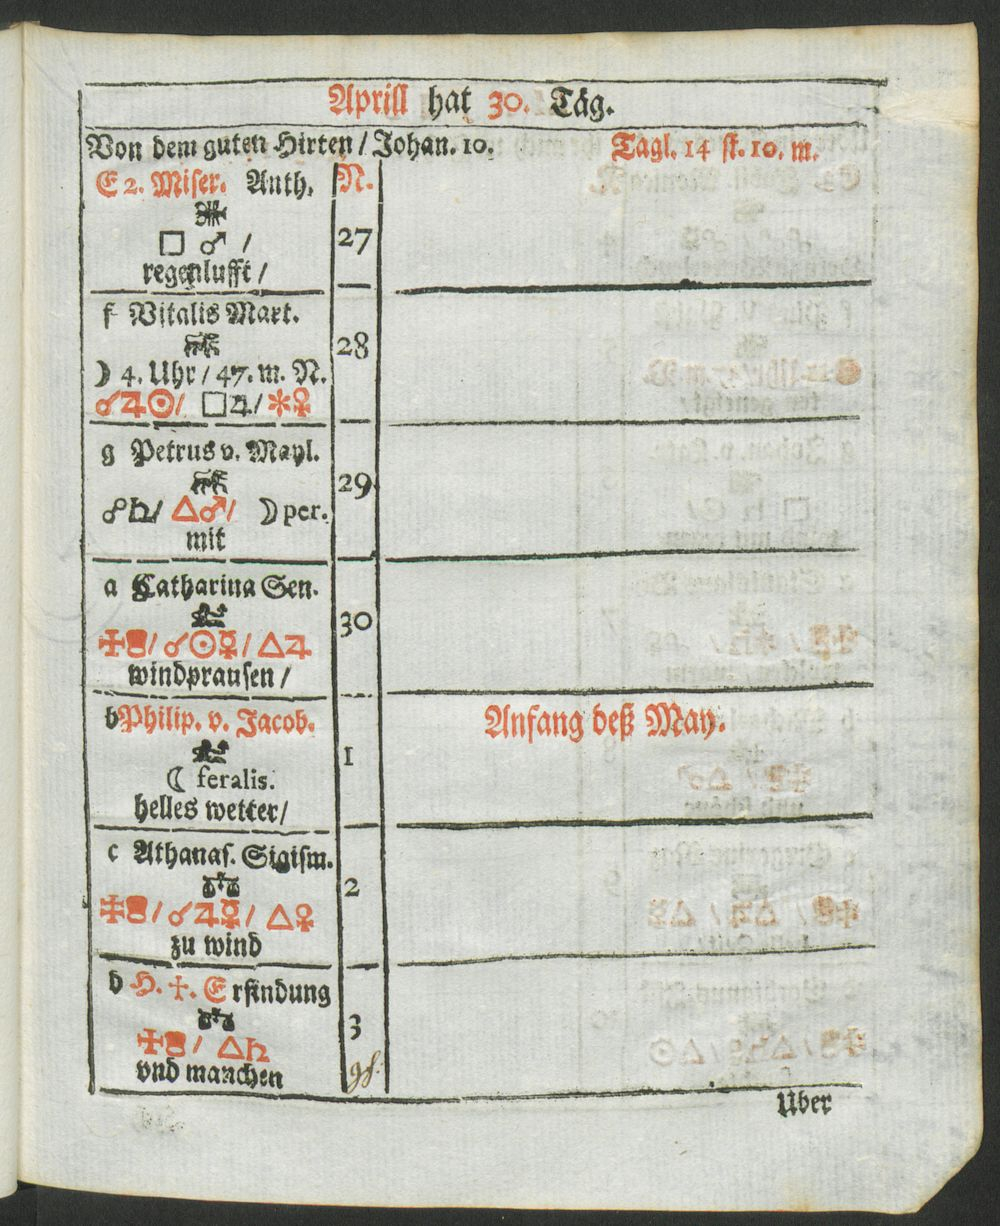 Aprill hat 30. Täg.
Von dem guten Hirten / Johan. 10. Tagl. 14 st. 10. m.
E 2. Miser. Anth. N.
□ ♂ / 27
regenlufft /
f Vitalis Mart.
28
☽ 4. Uhr / 47. m. N.
☌♃☉/ □♃/ ✶♀
g Petrus v. Mayl.
29
☍♄/ △♂/ ☽ per.
mit
a Catharina Sen.
30
☌☉☿/ △♃
windprausen /
b Philip. v. Jacob. Anfang deß May.
1
☾ feralis.
helles wetter /
c Athanas. Sigism.
2
☌♃☿/ △♀
zu wind
d H. ✠. Erfindung
3
△♄
vnd manchen
Uber